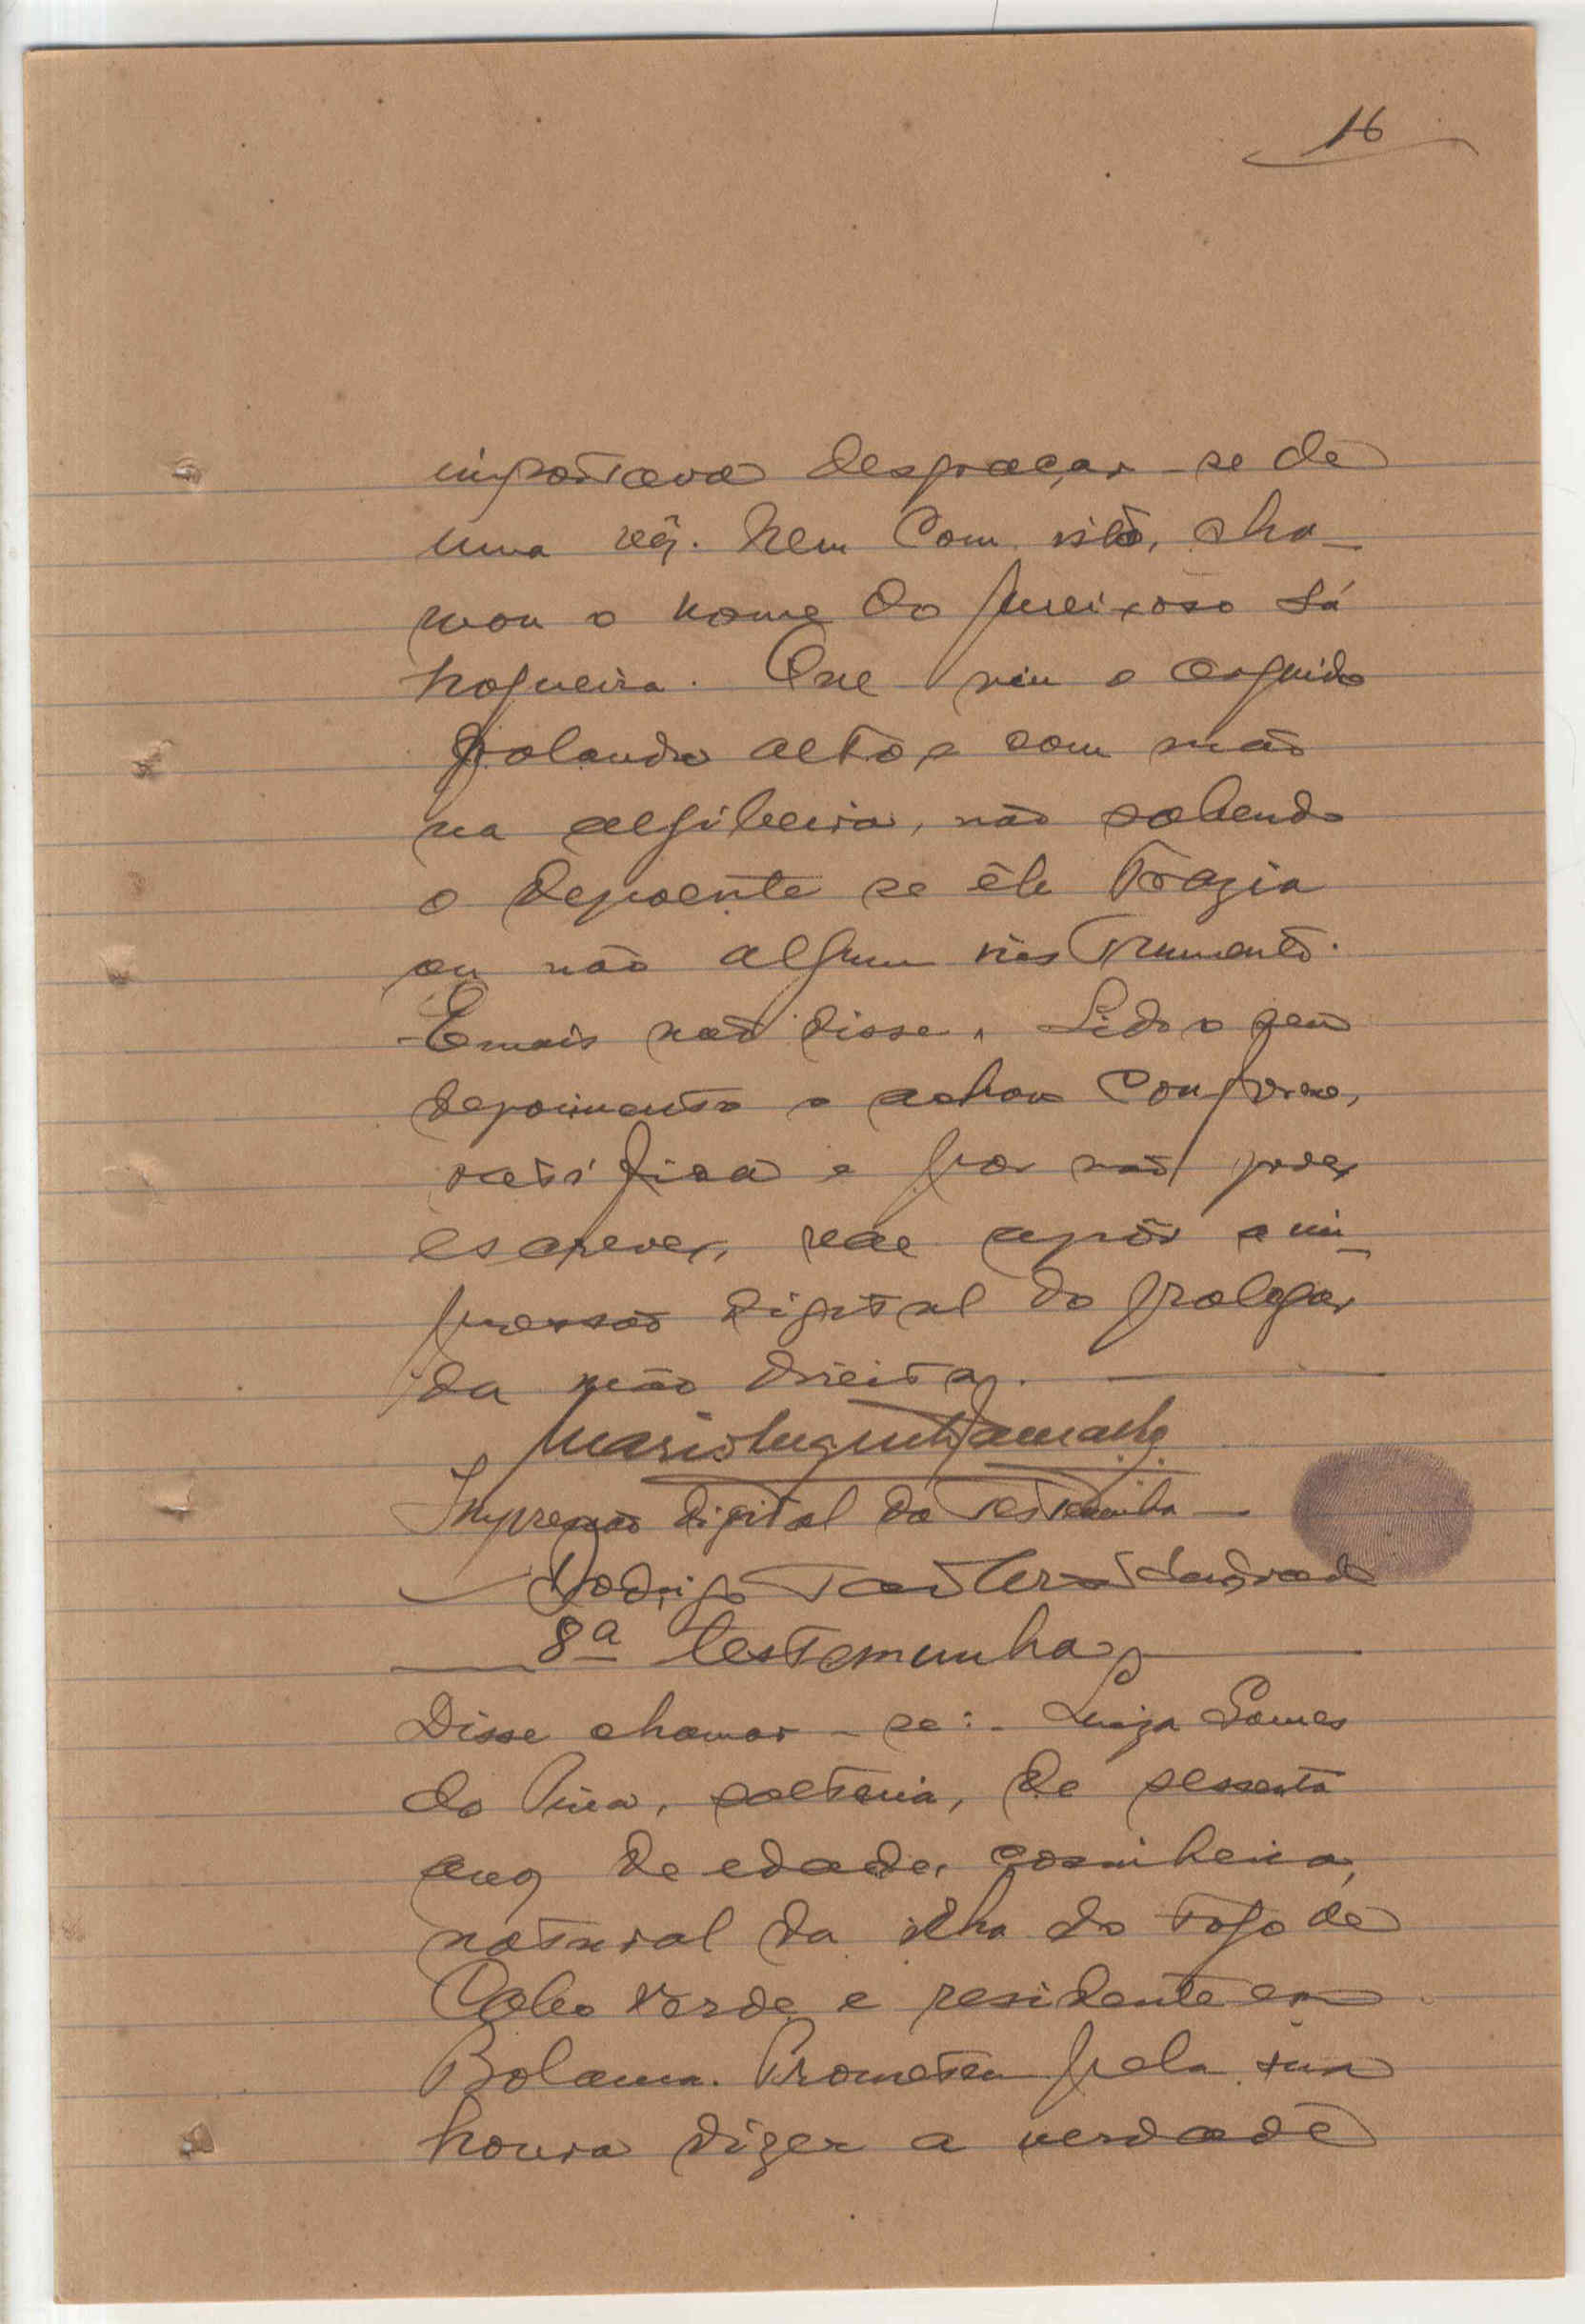 16
importava desgraçar-se de
uma vêz. Nem com isto, cha-
mou o nome do queixoso Sá
Nogueira. Que viu o arguido
falando alto e com mão
na algibeira, não sabendo
o depoente se êle trazia
ou não algum instrumento.
E mais não disse. Lido o seu
depoimento o achou conforme,
ratifica e por não poder
escrever, vae apôr a im-
pressão digital do polegar
da mão direita.
Impressão digital da testemunha
Rodrigo
8ª testemunha
Disse chamar-se:- Luiza Gomes
do Pina, solteira, de sessenta
anos de edade, cosinheira,
natural da ilha do Fogo de
Cabo Verde e residente em
Bolama. Prometeu pela sua
honra dizer a verdade